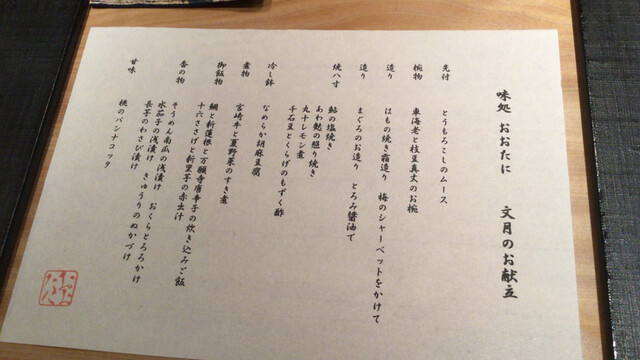 味処 おおたに 文月のお献立
先付 とうもろこしのムース
椀物 車海老と枝豆真丈のお椀
造り はもの焼き霜造り 梅のシャーベットをかけて
造り まぐろのお造り とろみ醤油で
焼八寸 鮎の塩焼き
あわ麩の照り焼き
丸十レモン煮
千石豆とくらげのもずく酢
冷し鉢 なめらか胡麻豆腐
煮物 宮崎牛と夏野菜のすき煮
御飯物 鯛と新蓮根と万願寺唐辛子の炊き込みご飯
十六ささげと新里芋の赤出汁
香の物 そうめん南瓜の浅漬け おくらとろろかけ
水茄子の浅漬け きゅうりのぬかづけ
長芋のわさび漬け
甘味 桃のパンナコッタ